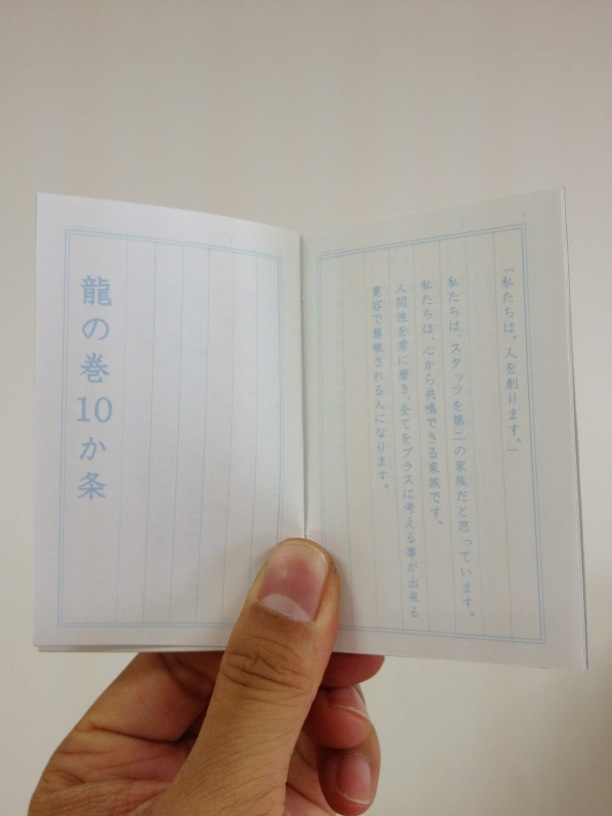 「私たちは、人を創ります。」
私たちは、スタッフを第二の家族だと思っています。
私たちは、心から共鳴できる家族です。
人間性を常に磨き、全てをプラスに考える事が出来る
寛容で尊敬される人になります。
龍の巻10か条